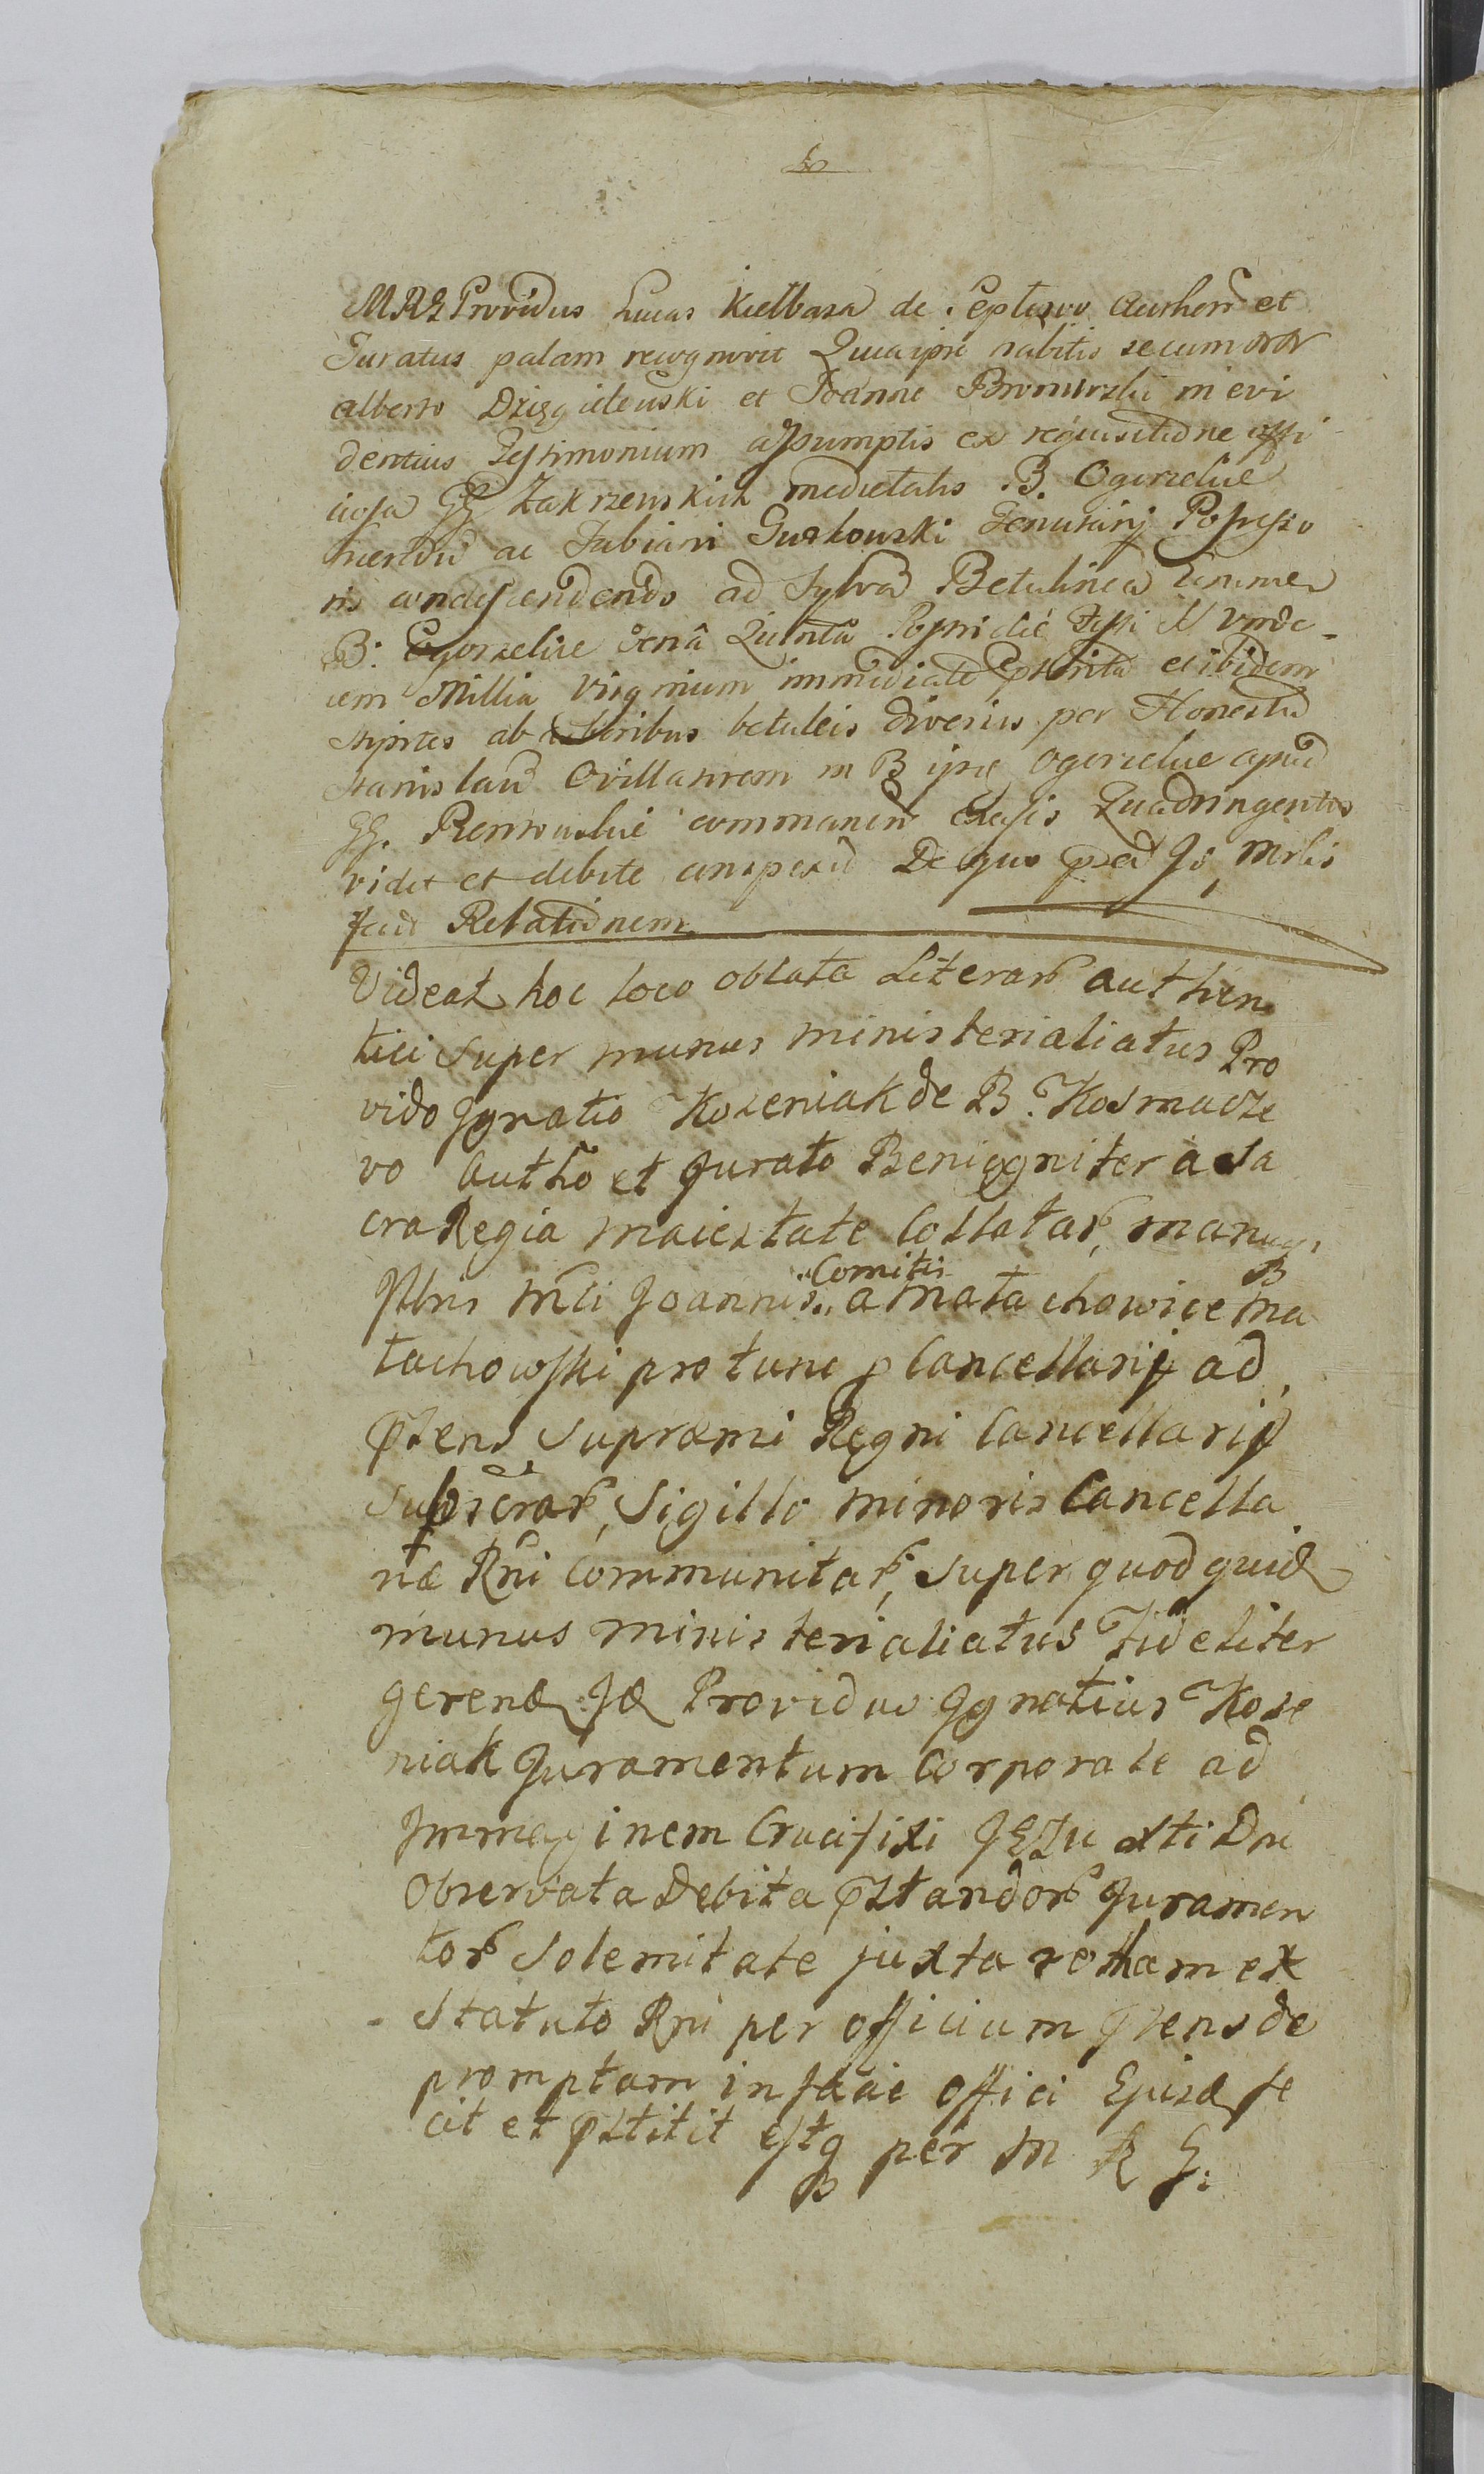 MRG Providus Lucas Kiełbasa de Septewo Authen et
Juratus palam recognovit Quia ipse habitis secum
alberto Dzięgielewski et Joanne in evi
dentius Testimonium assumptis ex requisitione offi
ciosa GG Zakrzewskich medietatis B. Ogorzelice
haeredu ac Fabiani Gurkowski Tenutarij Possesso
ris condescendendo ad Sylva Betulinea
B. Ogorzelice Feria Quinta Postridie Festi Unde
cem Millia Virginum immediate pterita et ibidem
stipites ab Arboribus betuleis diversis per Honestu
Stanislau Ovillatorem in B ipse Ogorzelice apud
GG. commanen Quadringentos
vidit et debite De quo pred
fecit Relationem
Videat hoc loco oblata Literar authen
tici super munus ministerialiatus Pro
vido Ignatio Koseniak de B. Kosmacze
vo Autho et Jurato Benigniter a Sa
cra Regia maiestate Collatar, manu
Illris Mci Joannis Comitis a Mała chowice Ma
łachowski pro tunc p Cancellarij ad
pstens Supremi Regni Cancellarij
Subscrar, Sigillo minoris Cancella
riæ Rni Communitar, super quod quid
munus ministerialiatus Fideliter
gerend Id Providus Ignatius Kose
niak Juramentum Corporale ad
Immaginem Crucifixi JEZu xti Dni
Observata Debita pstandor Juramen
tor Solemitate juxta rotham ex
Statuto Rni per officium pstens de
promptam in facie offici Ejusd fe
cit et pstitit estq per M R G.